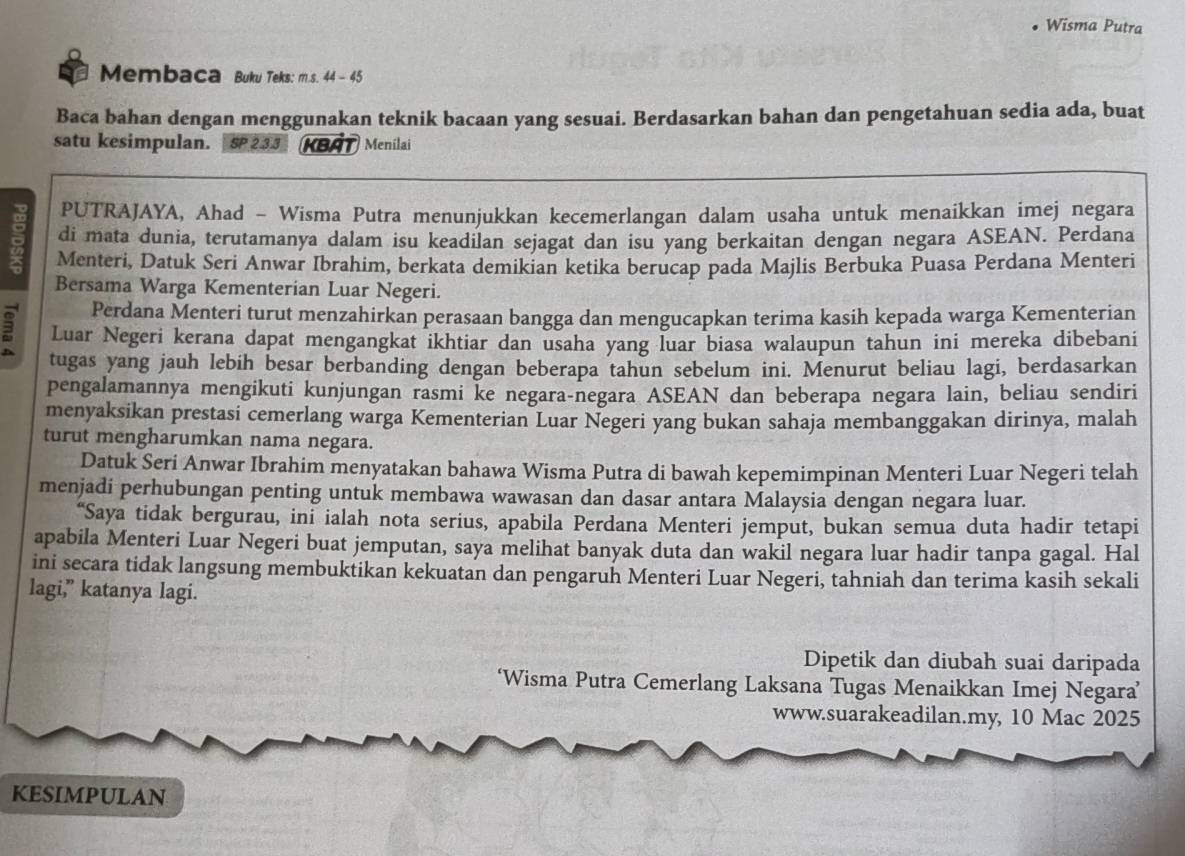 • Wisma Putra
Membaca Buku Teks: m.s. 44 – 45
Baca bahan dengan menggunakan teknik bacaan yang sesuai. Berdasarkan bahan dan pengetahuan sedia ada, buat
satu kesimpulan. SP 2.3.3 KBAT Menilai
PBD/DSKP
Tema 4
PUTRAJAYA, Ahad – Wisma Putra menunjukkan kecemerlangan dalam usaha untuk menaikkan imej negara
di mata dunia, terutamanya dalam isu keadilan sejagat dan isu yang berkaitan dengan negara ASEAN. Perdana
Menteri, Datuk Seri Anwar Ibrahim, berkata demikian ketika berucap pada Majlis Berbuka Puasa Perdana Menteri
Bersama Warga Kementerian Luar Negeri.
Perdana Menteri turut menzahirkan perasaan bangga dan mengucapkan terima kasih kepada warga Kementerian
Luar Negeri kerana dapat mengangkat ikhtiar dan usaha yang luar biasa walaupun tahun ini mereka dibebani
tugas yang jauh lebih besar berbanding dengan beberapa tahun sebelum ini. Menurut beliau lagi, berdasarkan
pengalamannya mengikuti kunjungan rasmi ke negara-negara ASEAN dan beberapa negara lain, beliau sendiri
menyaksikan prestasi cemerlang warga Kementerian Luar Negeri yang bukan sahaja membanggakan dirinya, malah
turut mengharumkan nama negara.
Datuk Seri Anwar Ibrahim menyatakan bahawa Wisma Putra di bawah kepemimpinan Menteri Luar Negeri telah
menjadi perhubungan penting untuk membawa wawasan dan dasar antara Malaysia dengan negara luar.
“Saya tidak bergurau, ini ialah nota serius, apabila Perdana Menteri jemput, bukan semua duta hadir tetapi
apabila Menteri Luar Negeri buat jemputan, saya melihat banyak duta dan wakil negara luar hadir tanpa gagal. Hal
ini secara tidak langsung membuktikan kekuatan dan pengaruh Menteri Luar Negeri, tahniah dan terima kasih sekali
lagi,” katanya lagi.
Dipetik dan diubah suai daripada
‘Wisma Putra Cemerlang Laksana Tugas Menaikkan Imej Negara’
www.suarakeadilan.my, 10 Mac 2025
KESIMPULAN